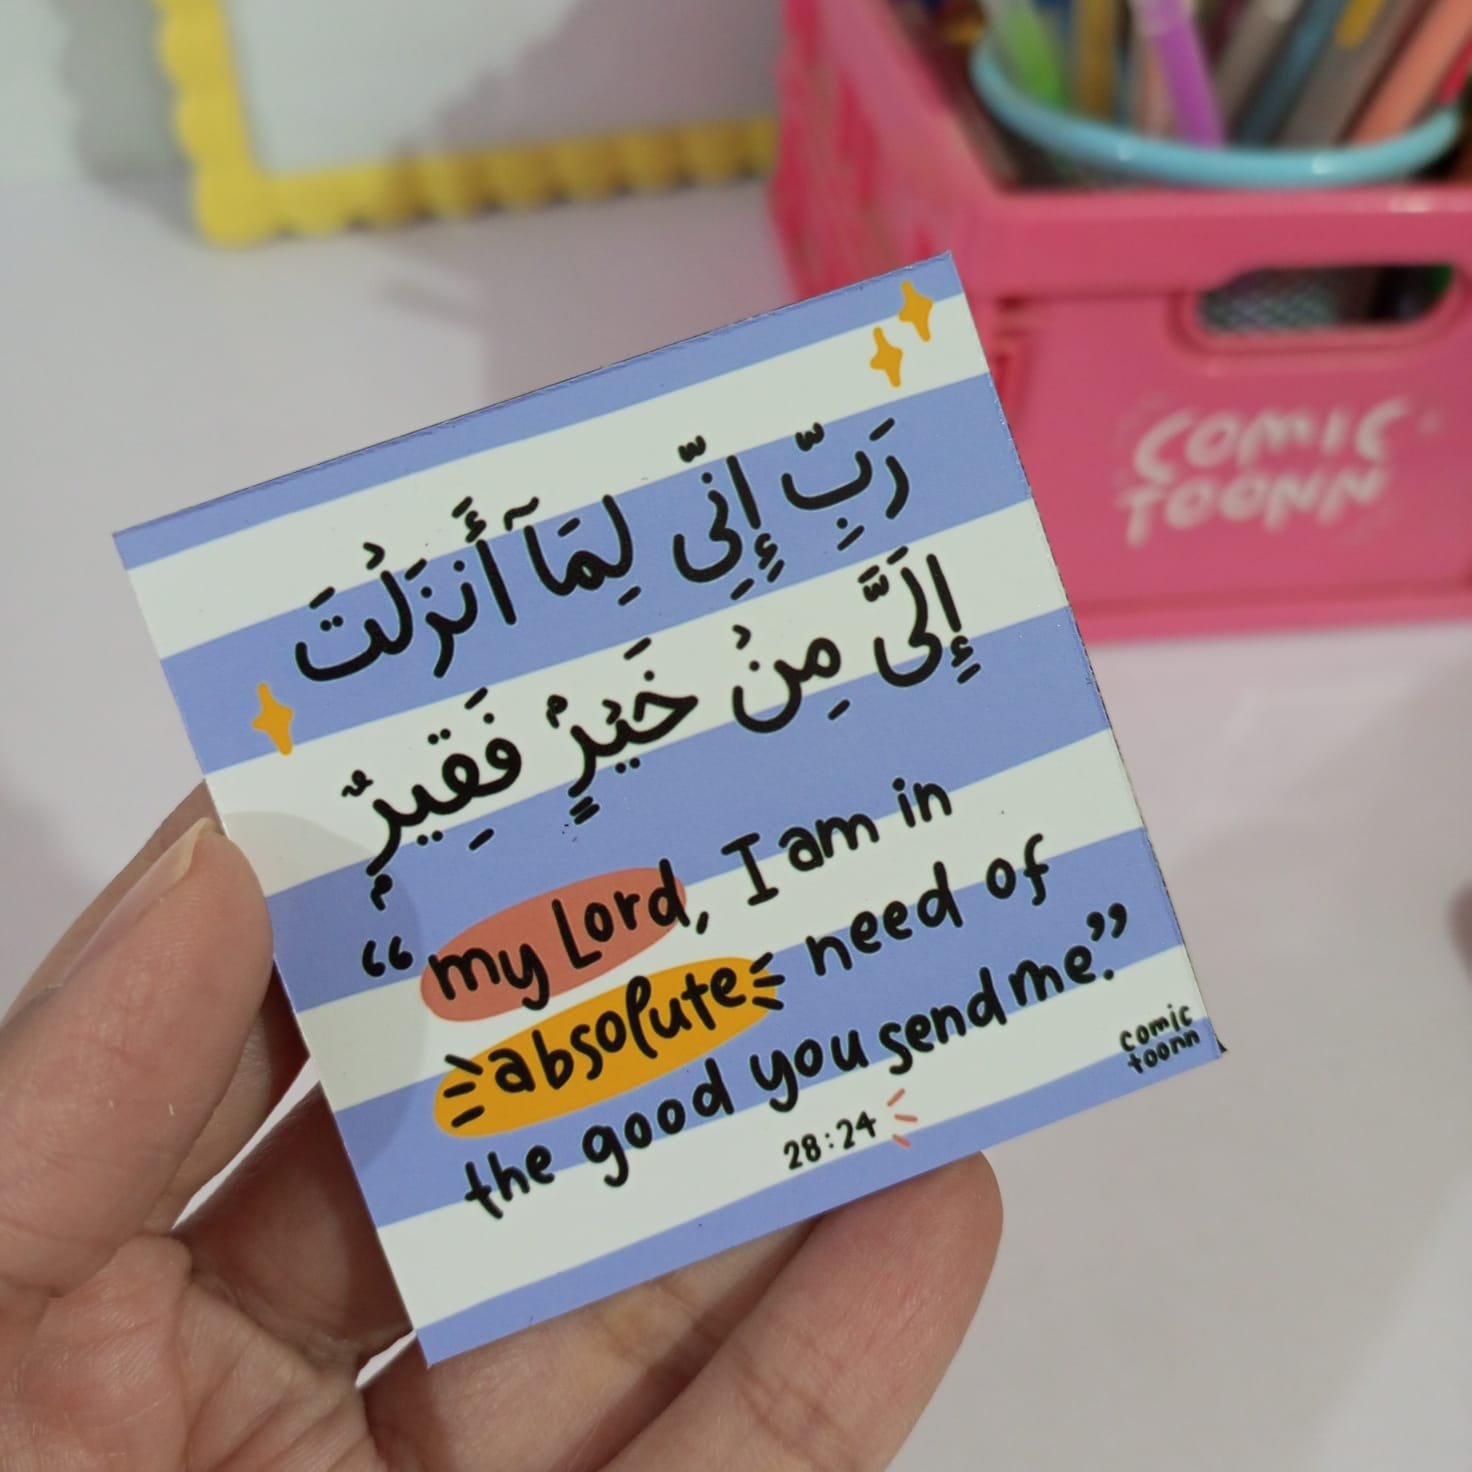 رَبِّ إِنِّى لِمَآ أَنزَلْتَ
إِلَىَّ مِنْ خَيْرٍۢ فَقِيرٌۭ
“my Lord, I am in
absolute need of
the good you send me.”
28:24
comic
toonn
COMIC
TOONN